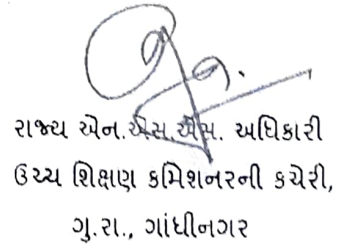 રાજ્ય એન.એસ.એસ. અધિકારી
ઉચ્ચ શિક્ષણ કમિશનરની કચેરી,
ગુ.રા., ગાંધીનગર